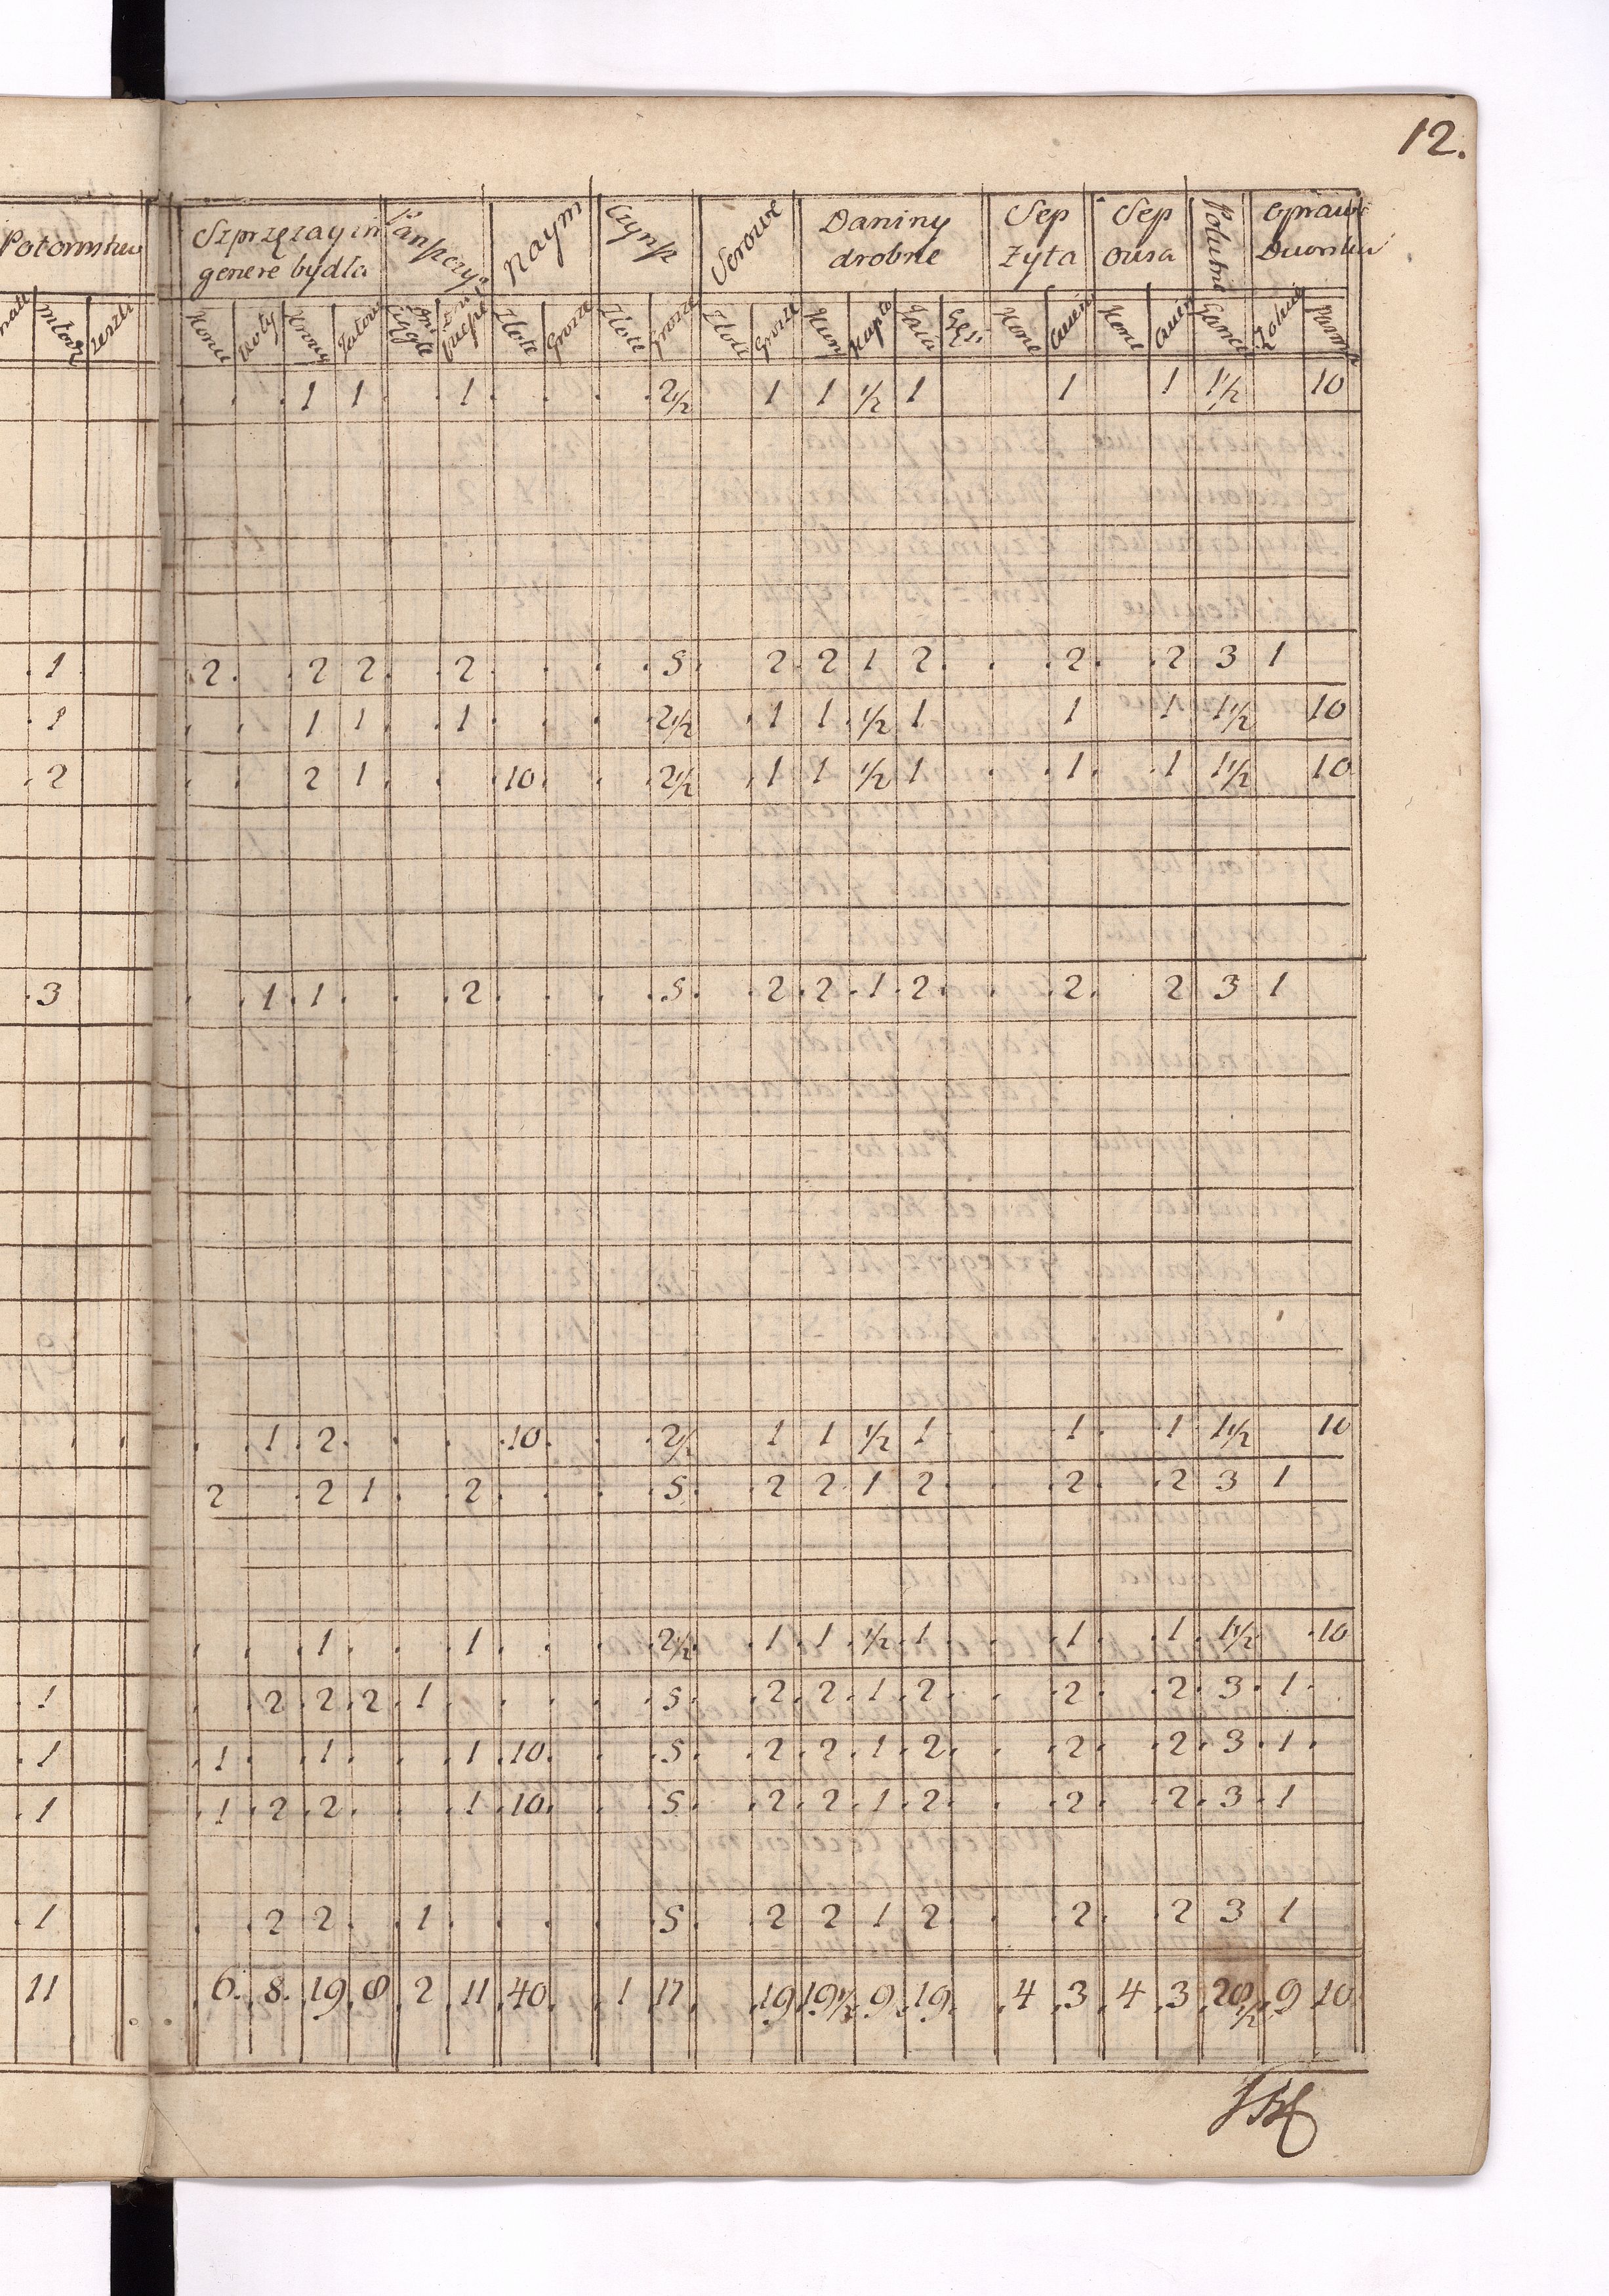 12.
Potomstwo Szprzężay in Pańszczyz. Naym Czynsz Serowe Daniny Sep Sep Połutne Oprawy
genere bydła drobne Żyta owsa Dworska
Młodz. Zeszli Konie Woły Krowy Jałowi. Ciągłe Piesze Złote Grosze Złote Grosze Złote Grosze Kury Kapło. Jaia Gęsi Korce Cwier. Korce Cwier. Garnce
. . . 1 1 . . 1 . . . . 2½ 1 1 ½ 1 1 1 1½ 10
. 1 . 2 . . 2 2 . . 2 . . . . 5 . 2 . 2 1 2 . . . 2 . . 2 3 1
. 1 . . 1 1 . . 1 . . . . 2½ . 1 1 . ½ 1 1 1 1½ 10
. 2 . . 2 1 . . . 10 . . . 2½ . 1 1 ½ 1 . . 1 . . 1 1½ 10
. 3 . . 1 . 1 . . . 2 . . . . 5 . . 2 . 2 . 1 . 2 . . . 2 . 2 3 1
. . . . 1 . 2 . . . . 10 . . . 2½ . 1 1 ½ 1 . . 1 . . 1 1½ 10
2 . 2 1 . . 2 . . . . 5 . . 2 2 1 2 . . . 2 . . 2 3 1
. . . 1 . . . 1 . . . . 2½ . . 1 . 1 . ½ . 1 . . . 1 . . 1 . 1½ . 10
. 1 . . 2 . 2 . 2 . 1 . . . . . 5 . . 2 . 2 . 1 . 2 . . . 2 . . 2 . 3 . 1 .
. 1 . 1 . . 1 . . . 1 . 10 . . . 5 . . 2 . 2 . 1 . 2 . . . 2 . . 2 . 3 . 1 .
. 1 . 1 . 2 . 2 . . . 1 . 10 . . . 5 . . 2 . 2 . 1 . 2 . . . 2 . . 2 . 3 . 1
. 1 . . 2 . 2 . . 1 . . . . . 5 . . 2 2 1 2 . . . 2 . . 2 3 1
11 . 6 . 8 . 19 . 8 . 2 . 11 . 40 . 1 . 17 . . 19 . 19½ . 9 . 19 . . 4 . 3 . 4 . 3 . 20½ . 9 . 10